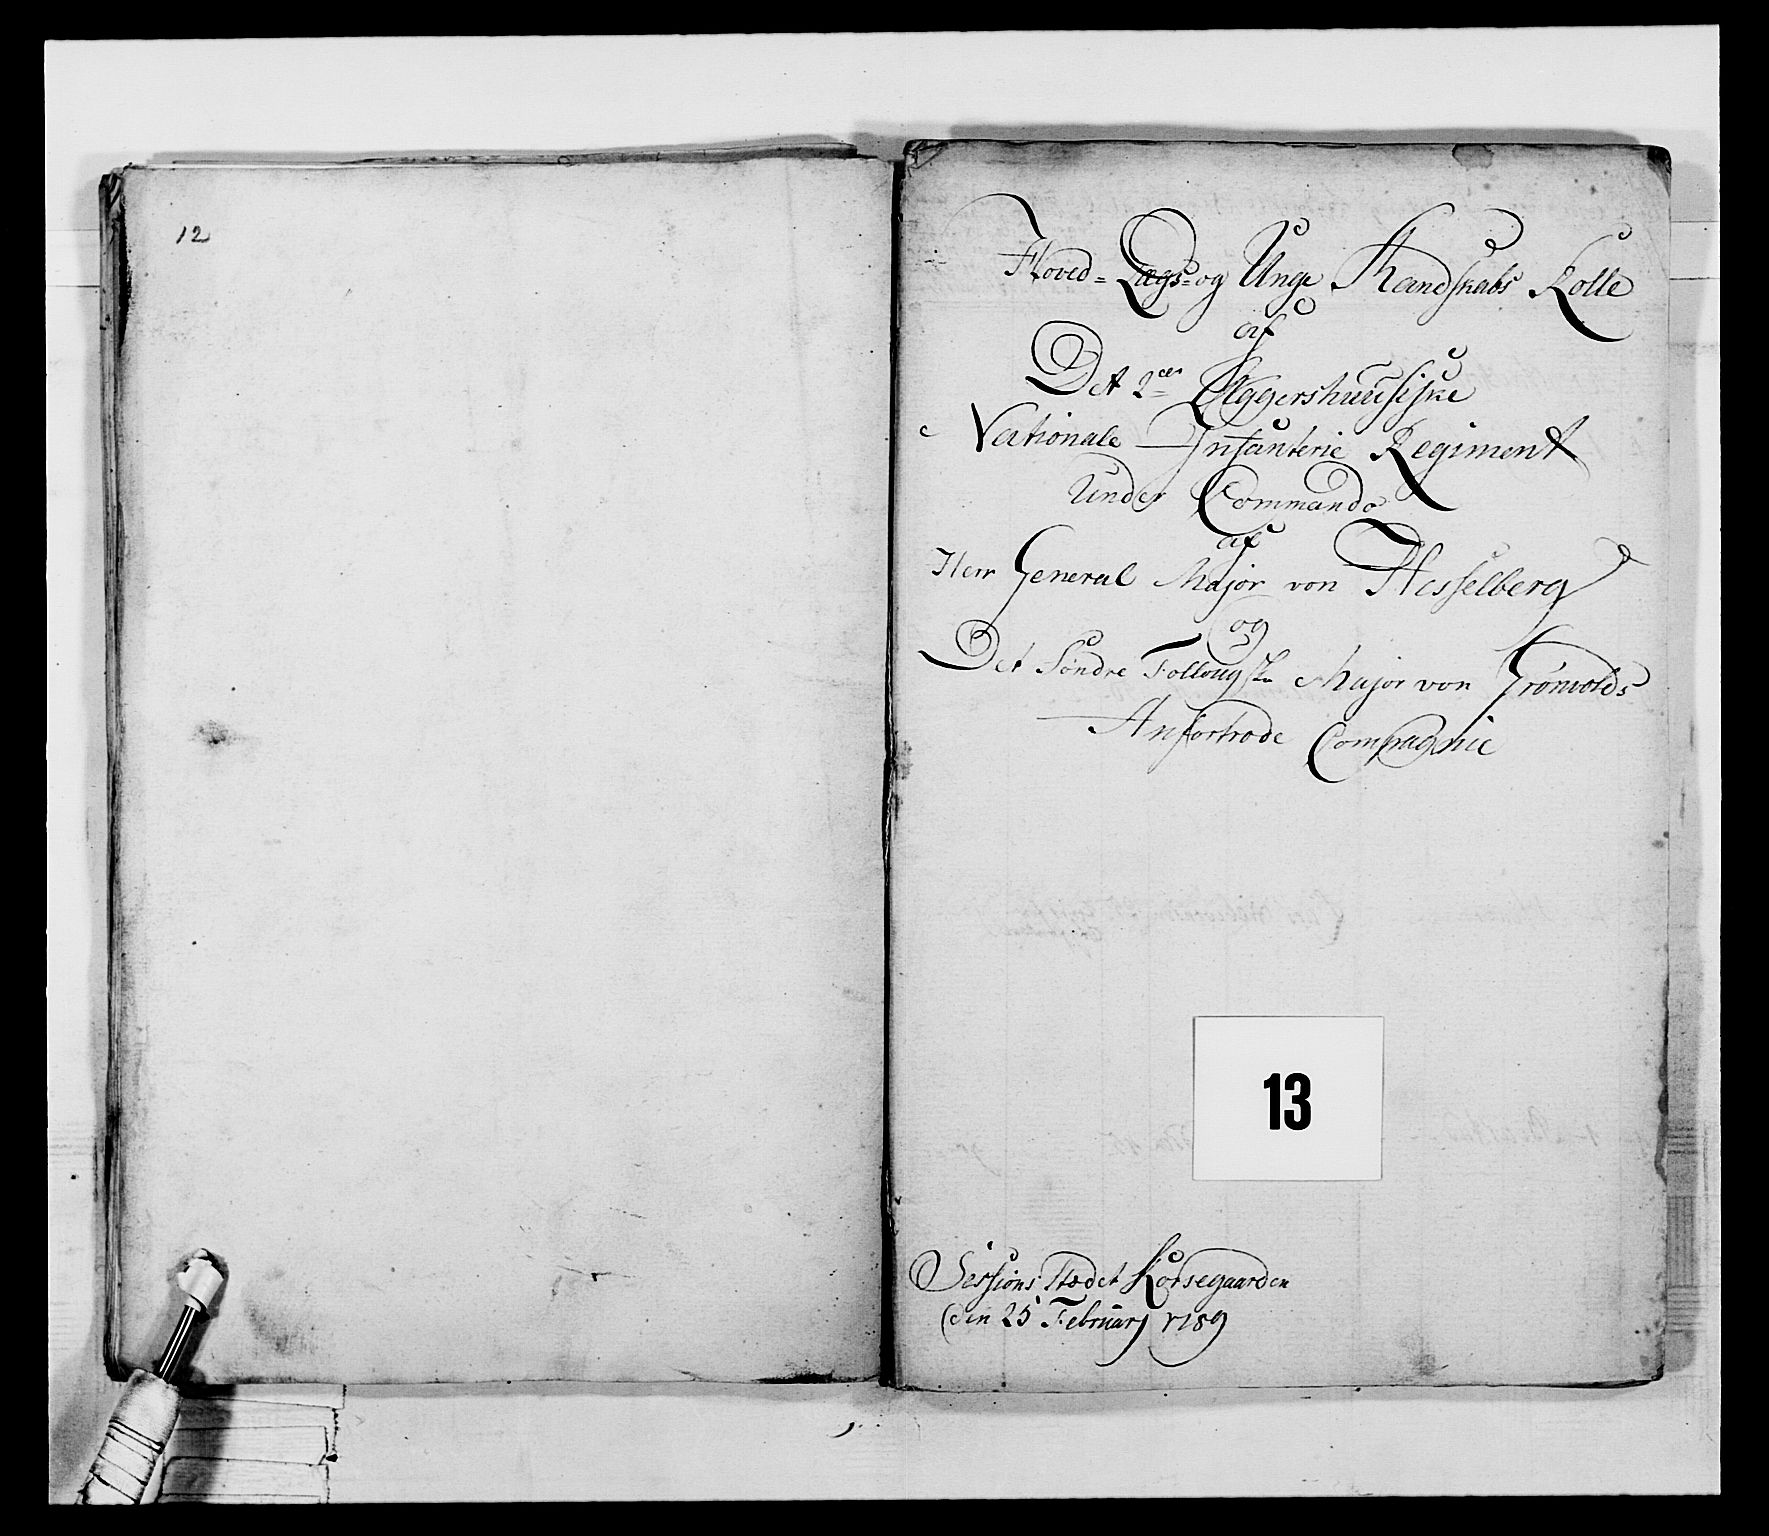 12
Hoved= Lægs=og Unge Mandskabs Rolle
af
Det 2det Aggershuusiske
Nationale Infanterie Regiment
Under Commando
af
Herr General Major von Hesselberg
og
Det Søndre Follougske Major von Grønvolds
Anfortrode Compagnie
13
Sessions Stædet Korsegaarden
den 25 Februarj 1789